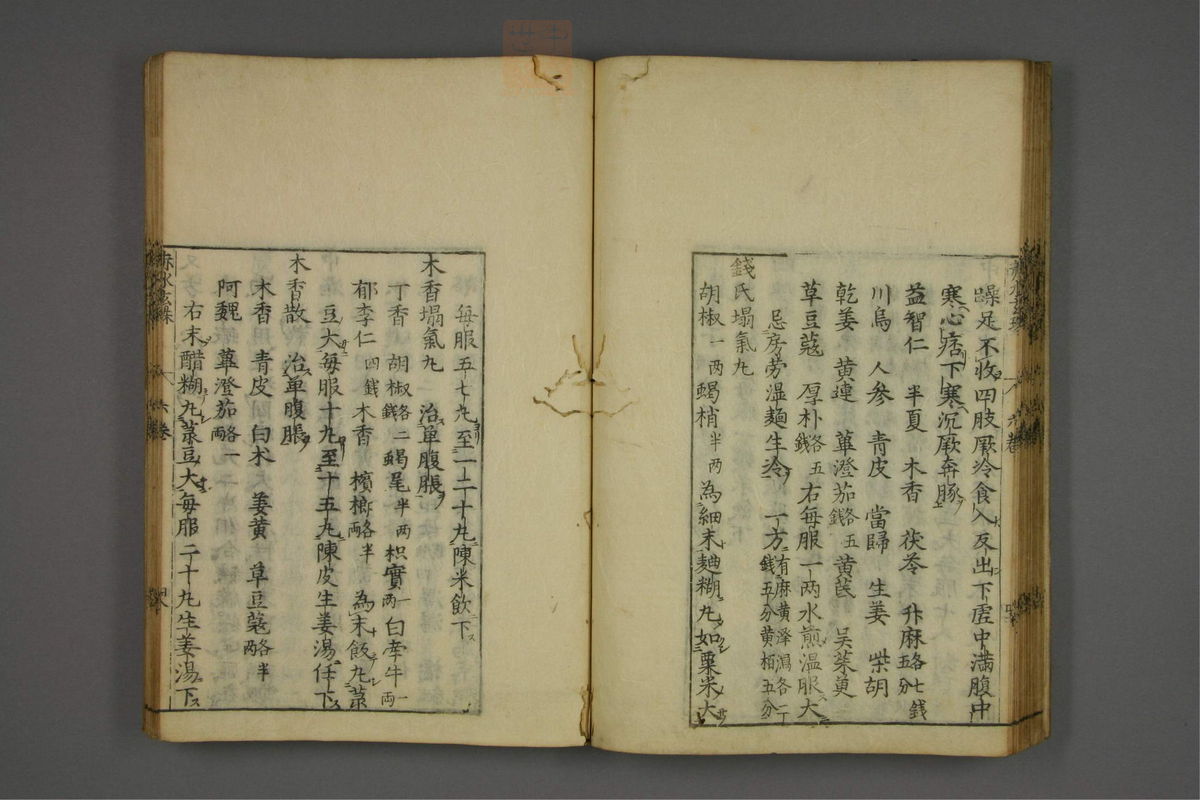 躁足不收四肢厥冷食入反出下虚中満腹中
寒心痞下寒沉厥奔豚
益智仁 半夏 木香 茯苓 升麻各七錢五分
川烏 人参 青皮 當歸 生姜 柴胡
乾姜 黄連 蓽澄茄各五錢 黄芪 吴茱萸
草豆蔻 厚朴各五錢 右毎服一两水煎温服大
忌房劳温麺生冷 一方有麻黄澤瀉各二丁錢五分黄栢五分
錢氏塌氣丸
胡椒一两蝎梢半两為細末麺糊丸如粟米大
毎服五七丸至一二十丸陳米飲下
木香塌氣丸 治单腹脹
丁香 胡椒各二錢 蝎尾半两 枳實一两 白牵牛一両
郁李仁四錢 木香 檳榔各半両 為末飯丸菉
豆大毎服十丸至十五丸陳皮生姜湯任下
木香散 治单腹脹
木香 青皮 白术 姜黄 草豆蔻各半両
阿魏 蓽澄茄各一両
右末醋糊丸菉豆大毎服二十丸生姜湯下